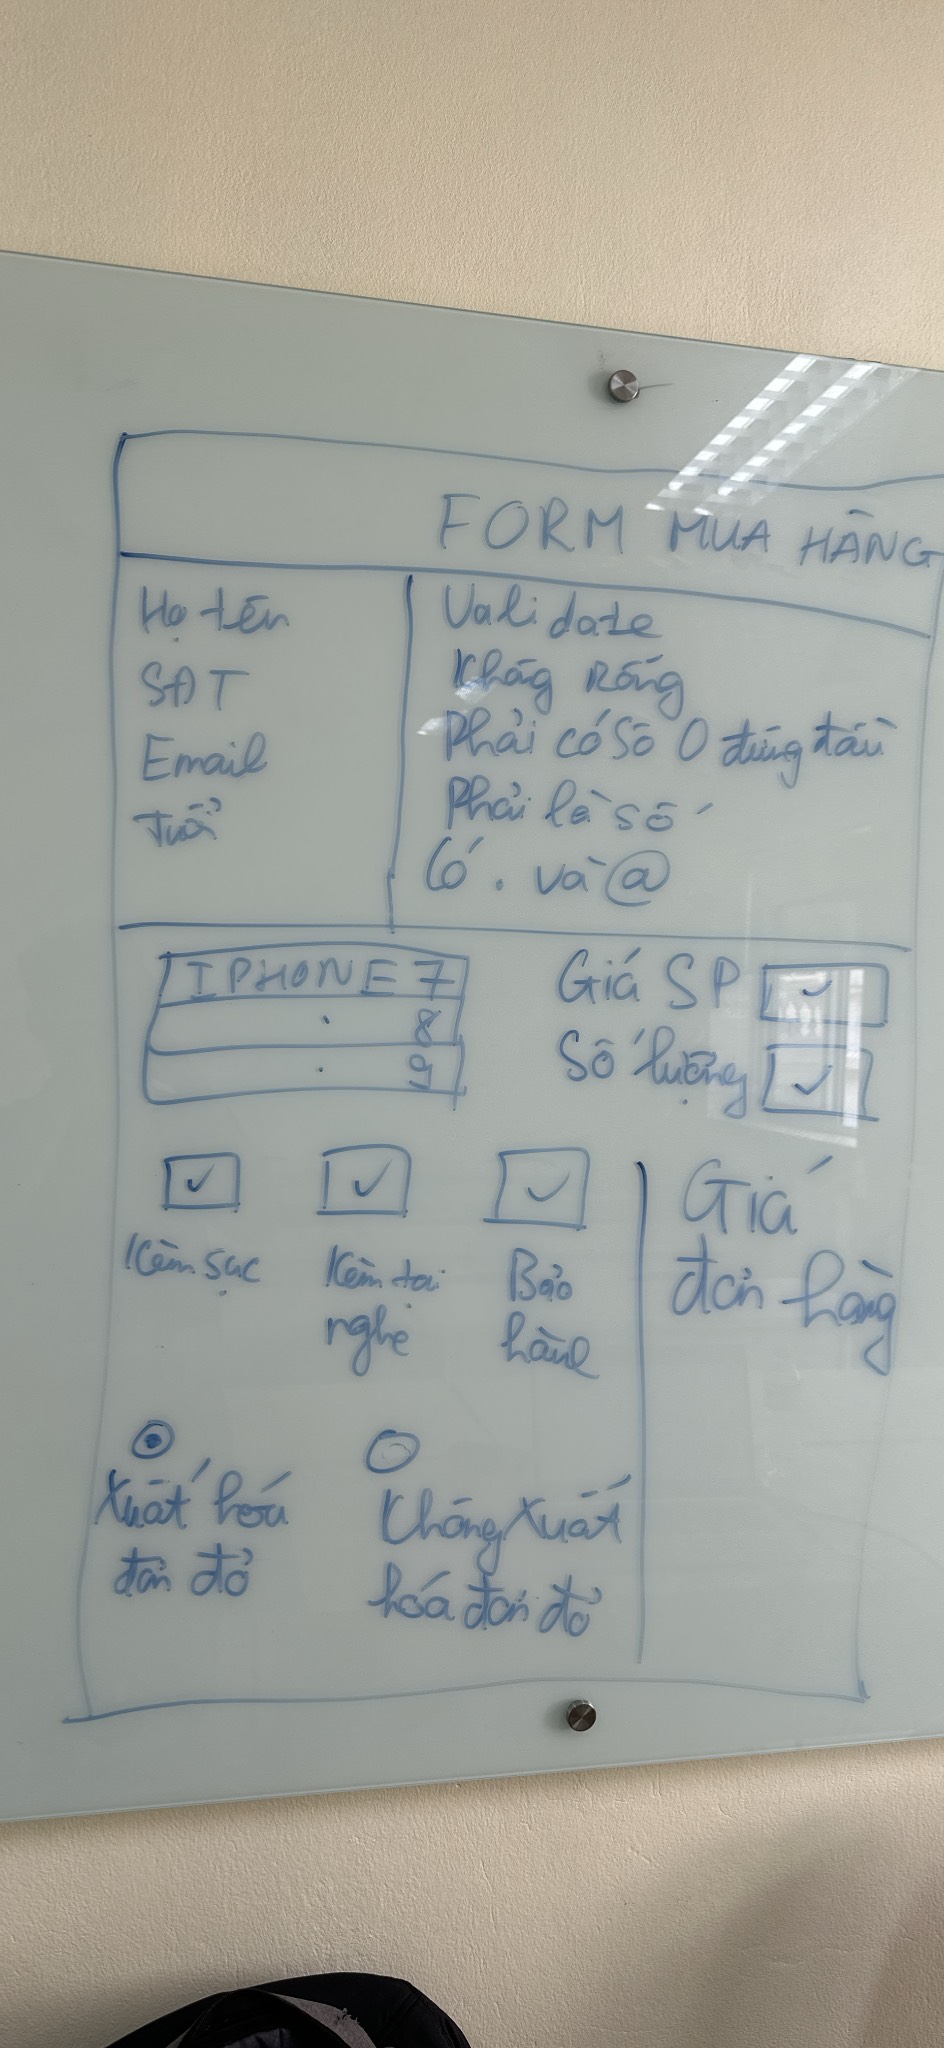 FORM MUA HÀNG
Họ tên
SĐT
Email
Tuổi
Validate
Không Rỗng
Phải có Số 0 đứng đầu
Phải là số
Có . và @
IPHONE 7
. 8
. 9
Giá SP
Số lượng
Kèm sạc
Kèm tai
nghe
Bảo
hành
Giá
đơn hàng
Xuất hóa
đơn đỏ
Không Xuất
hóa đơn đỏ